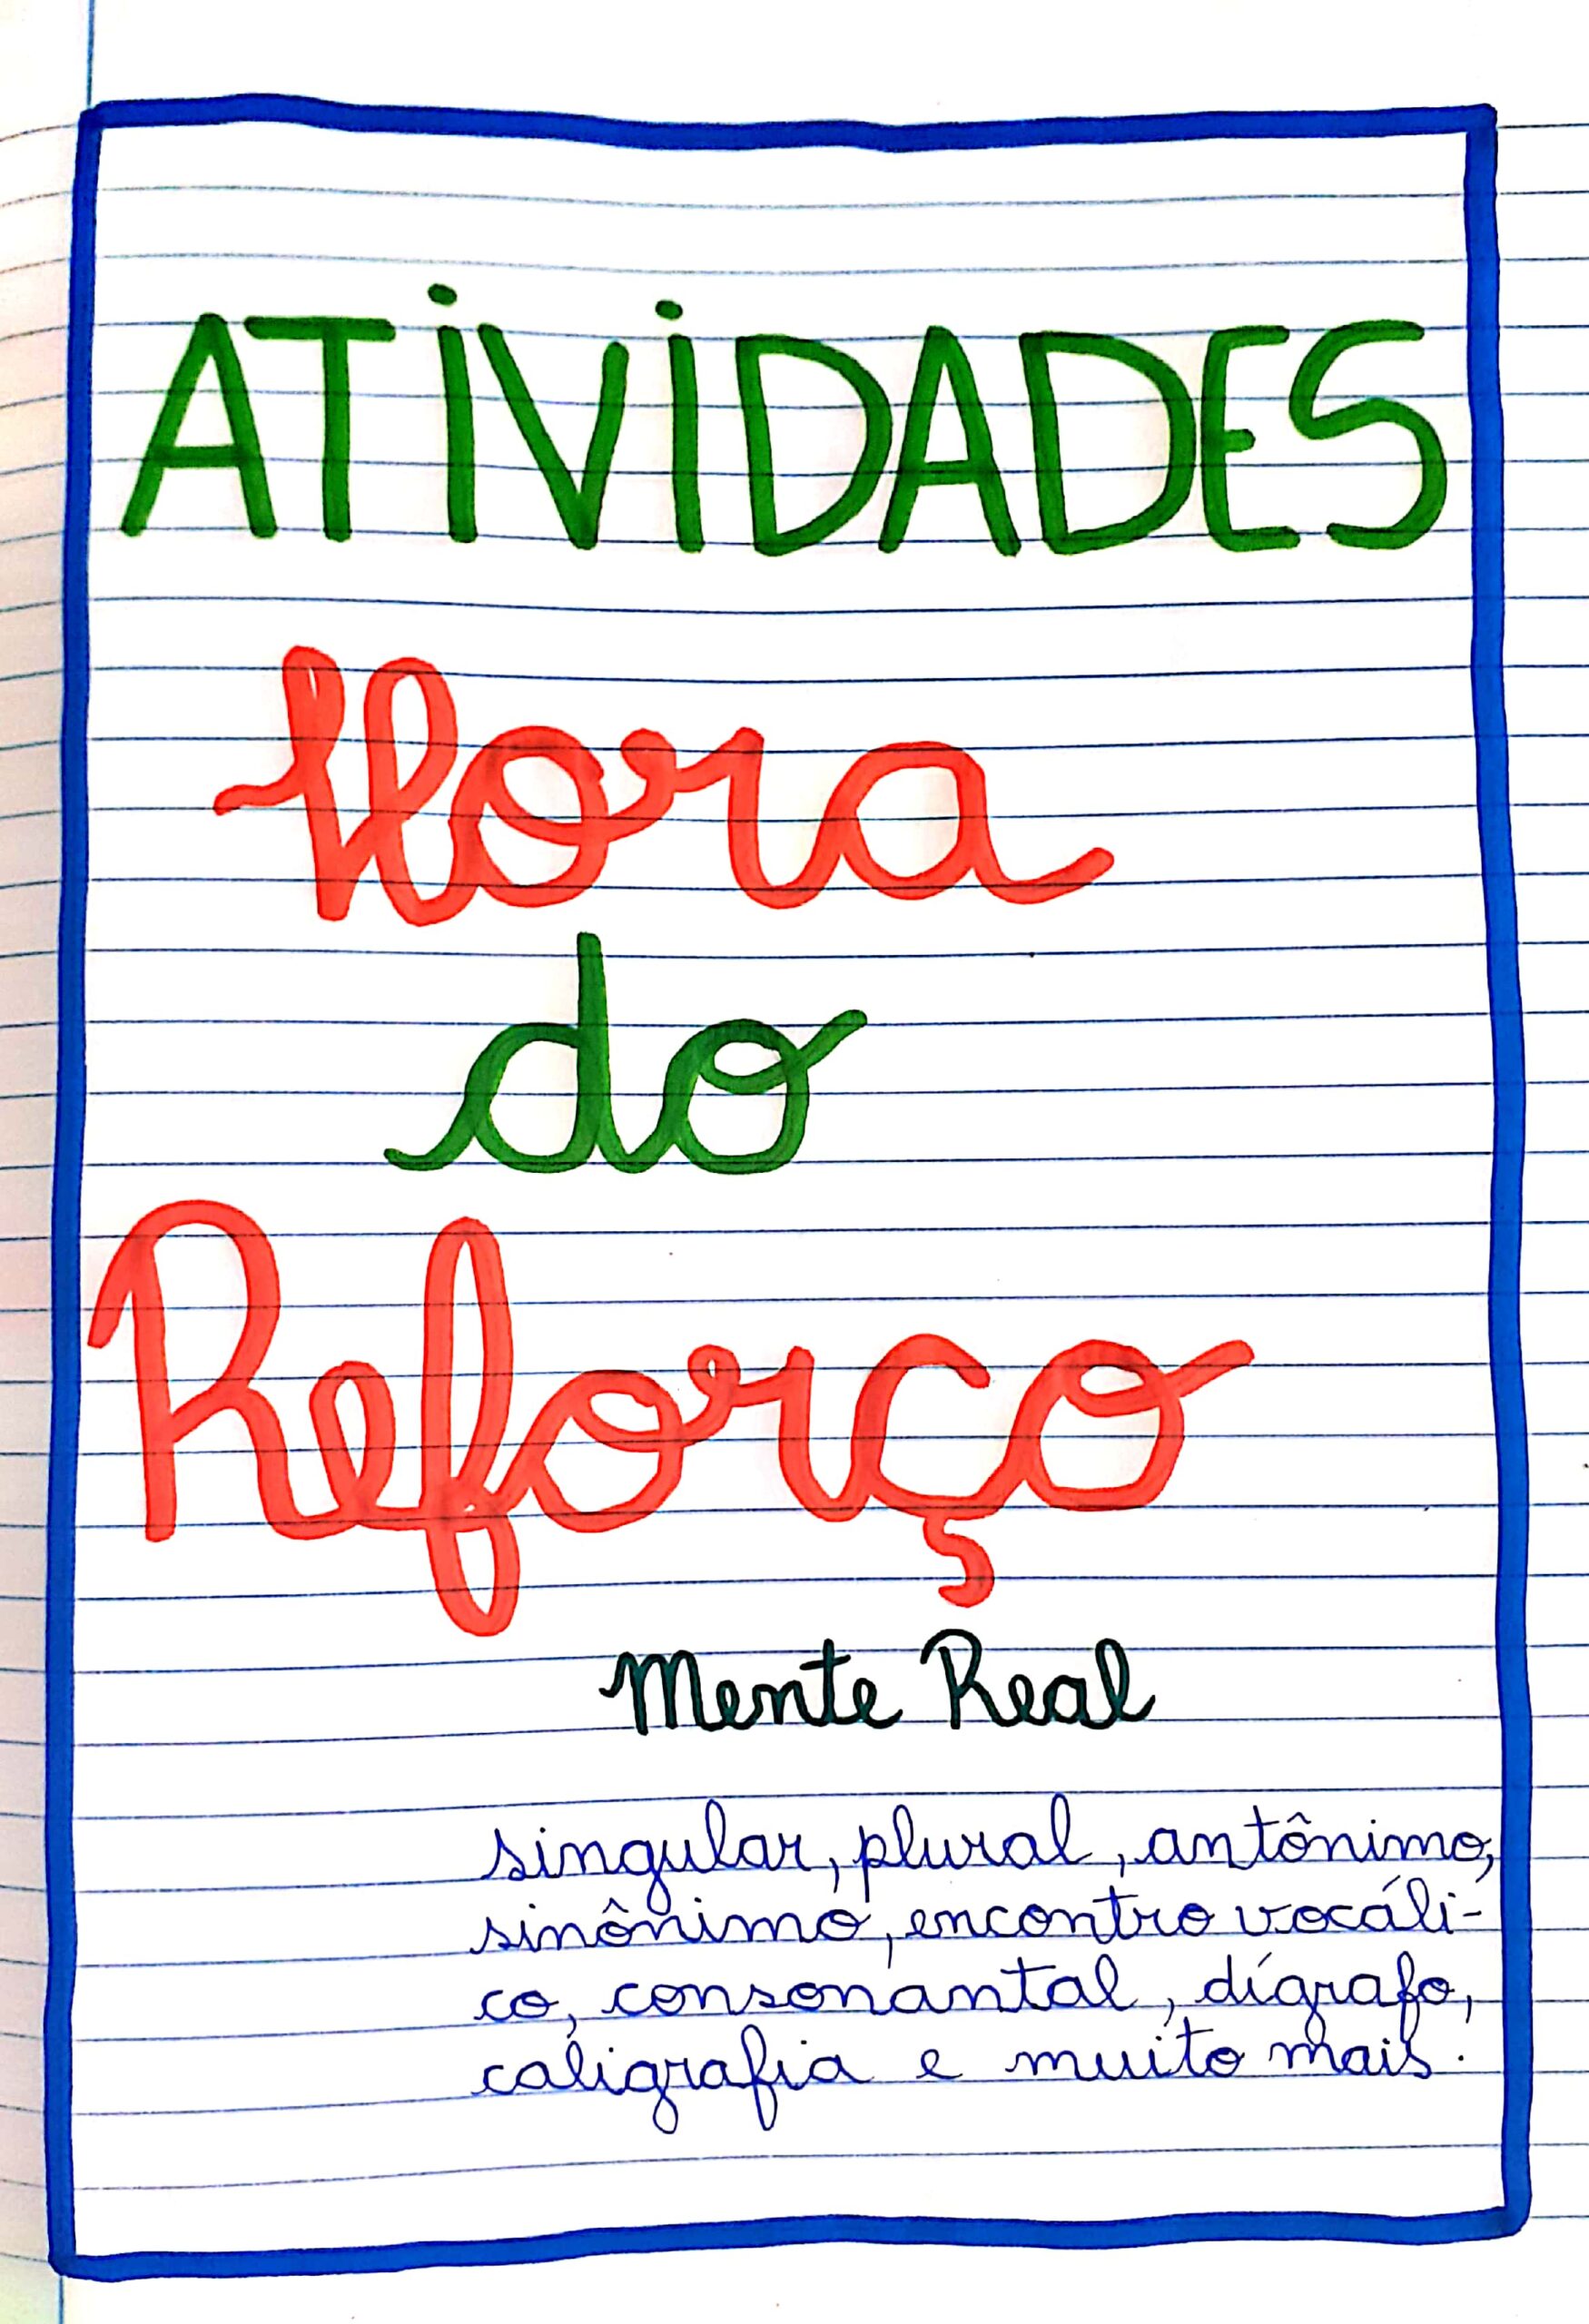 ATIVIDADES
Hora
do
Reforço
Mente Real
singular, plural, antônimo,
sinônimo, encontro vocáli-
co, consonantal, dígrafo,
caligrafia e muito mais.